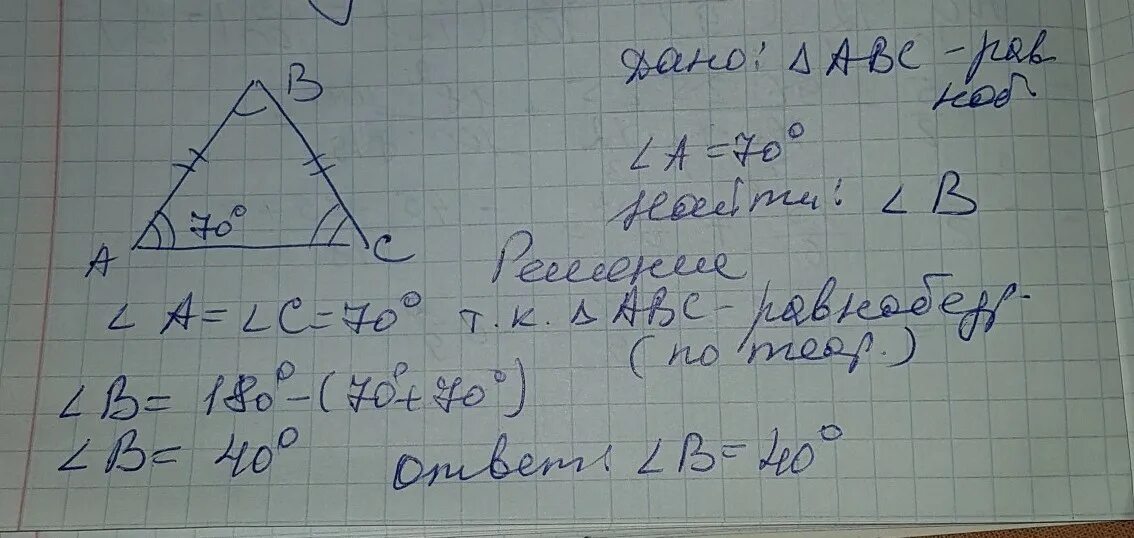 B
A
70°
C
Дано: △ABC – рав
ноб
∠A = 70°
Найти: ∠B
Решение
∠A = ∠C = 70° т.к. △ABC – равнобедр-
(по теор.)
∠B = 180° – (70° + 70°)
∠B = 40° Ответ: ∠B = 40°